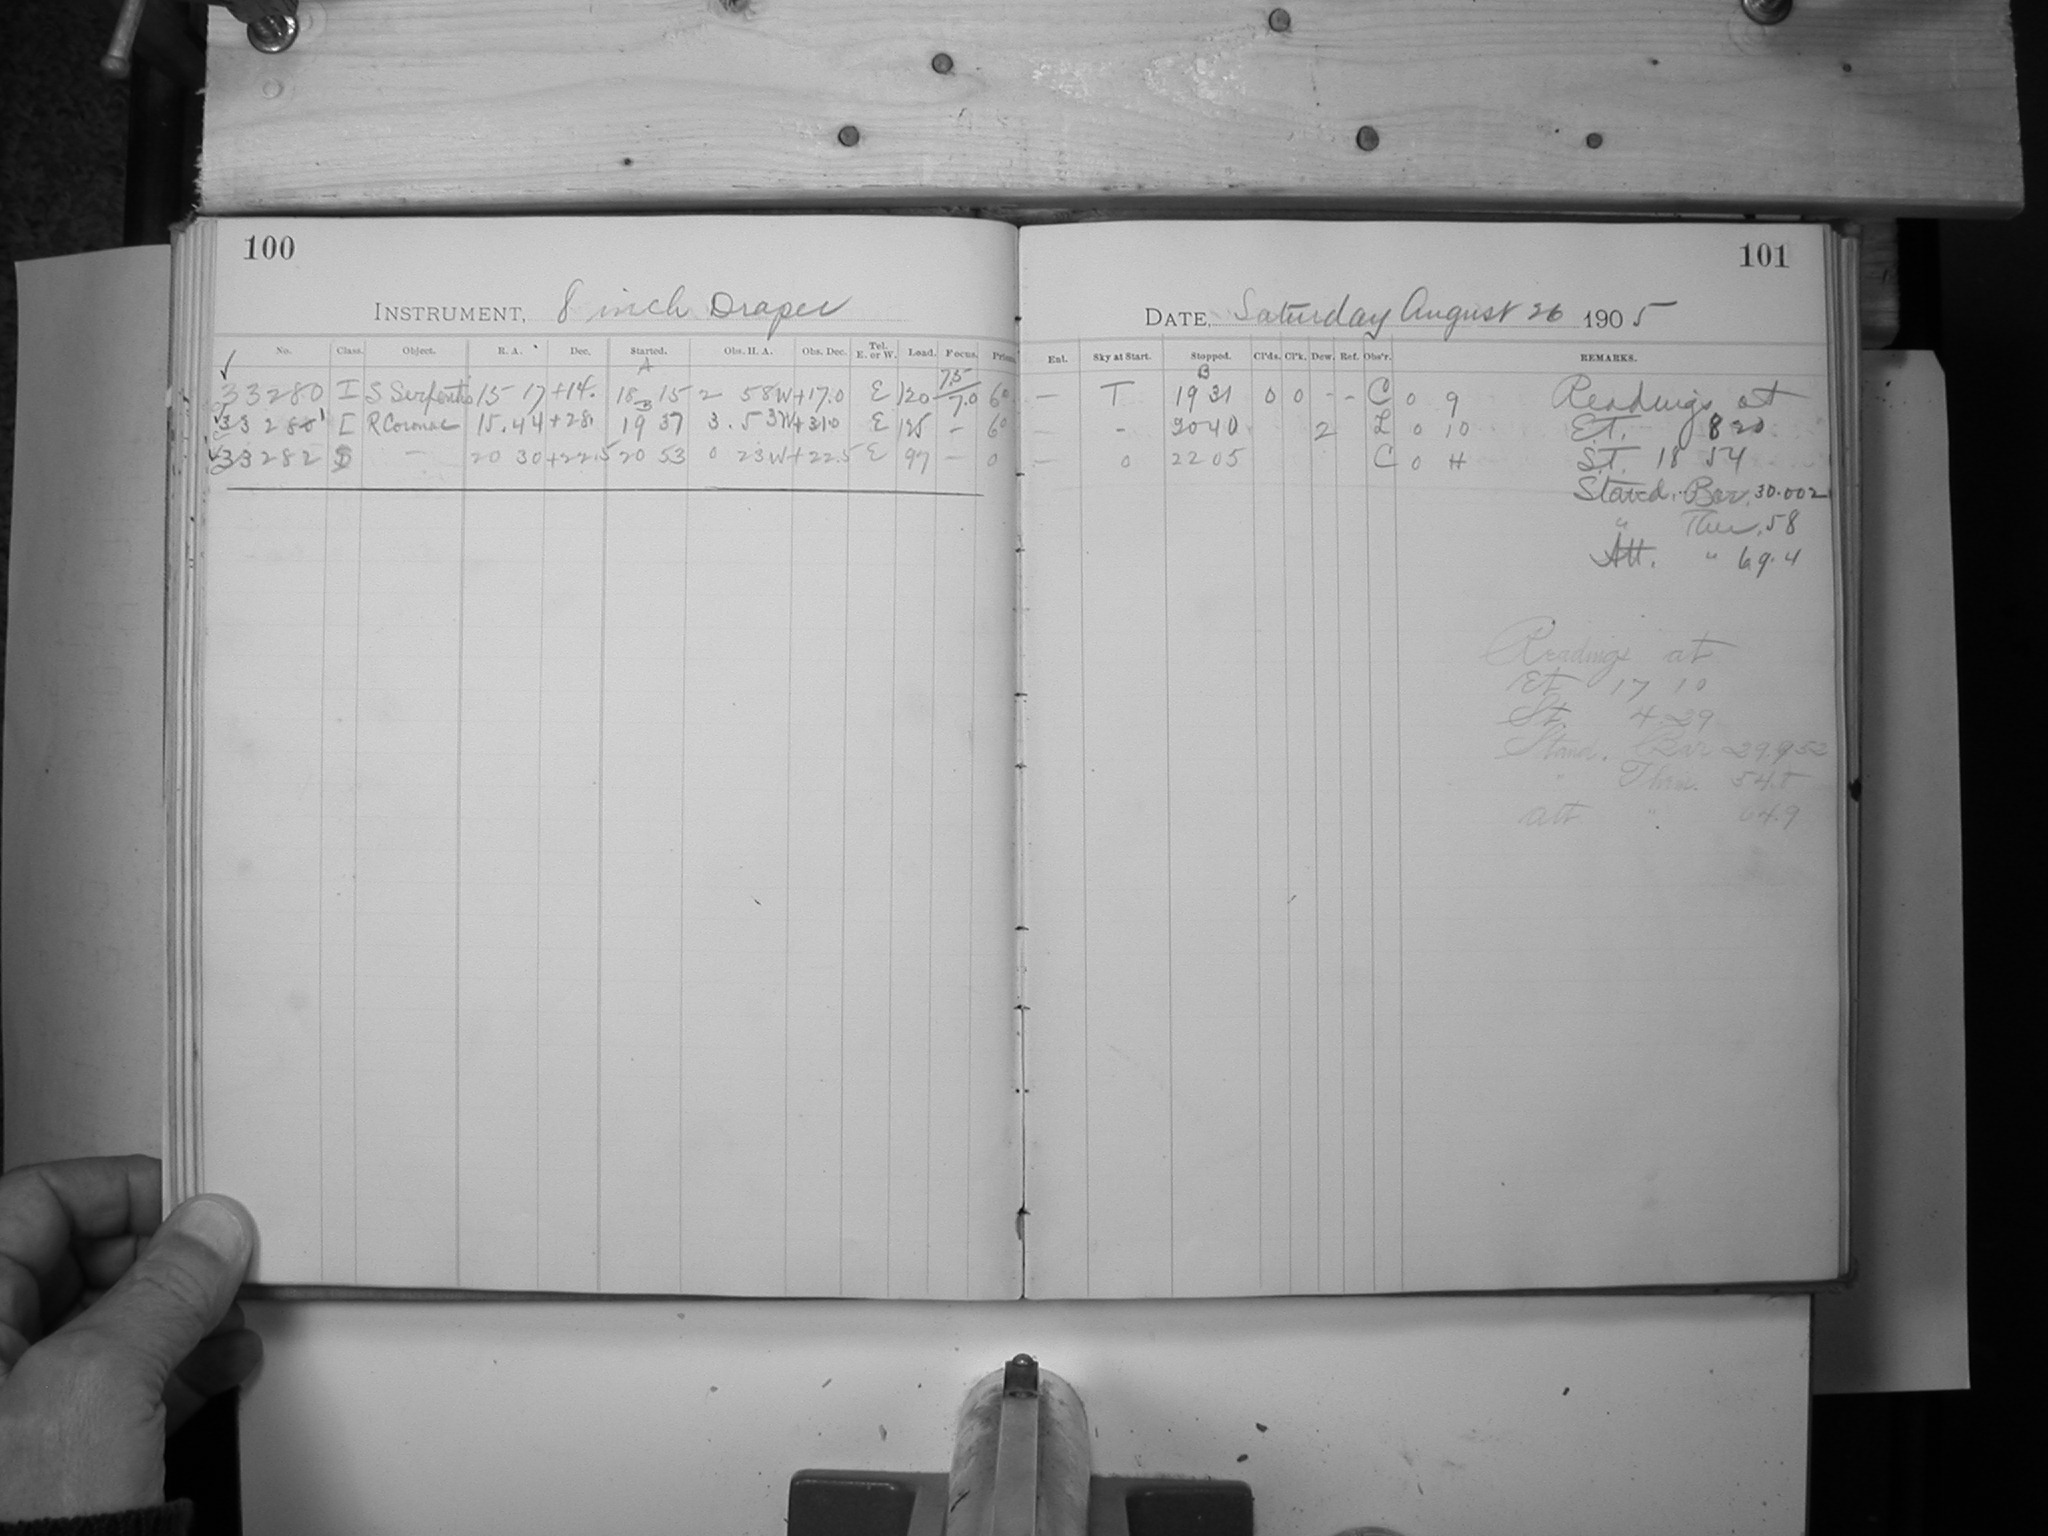 100
INSTRUMENT, 8 inch Draper
No. Class. Object. R. A. Dec. Started. Obs. H. A. Obs. Dec. Tel. E. or W. Load. Focus. Prism.
A 7.5
33280 I S Serpentis 15 17 +14. 18 15 2 58W +17.0 E 120 7.0 60
B
33 281 I R Coronae 15.44 +28. 19 37 3.53W +31.0 E 125 - 60
33282 - 20 30 +22.5 20 53 0 23W +22.5 E 97 - 0
101
DATE, Saturday August 26 1905
Enl. Sky at Start. Stopped. Cl'ds. Cl'k. Dew. Ref. Obs'r. REMARKS.
B
— T 19 31 0 0 - - C 0 9 Readings at
— - 2040 2 L 0 10 E.T. 8 20
— 0 2205 C 0 H S.T. 18 54
Stand. Bar. 30.002
" Ther. 58
Att. " 69.4
Readings at
Et 17 10
St. 4 29
Stand. Bar 29.952
" Ther. 54.5
att " 64.9